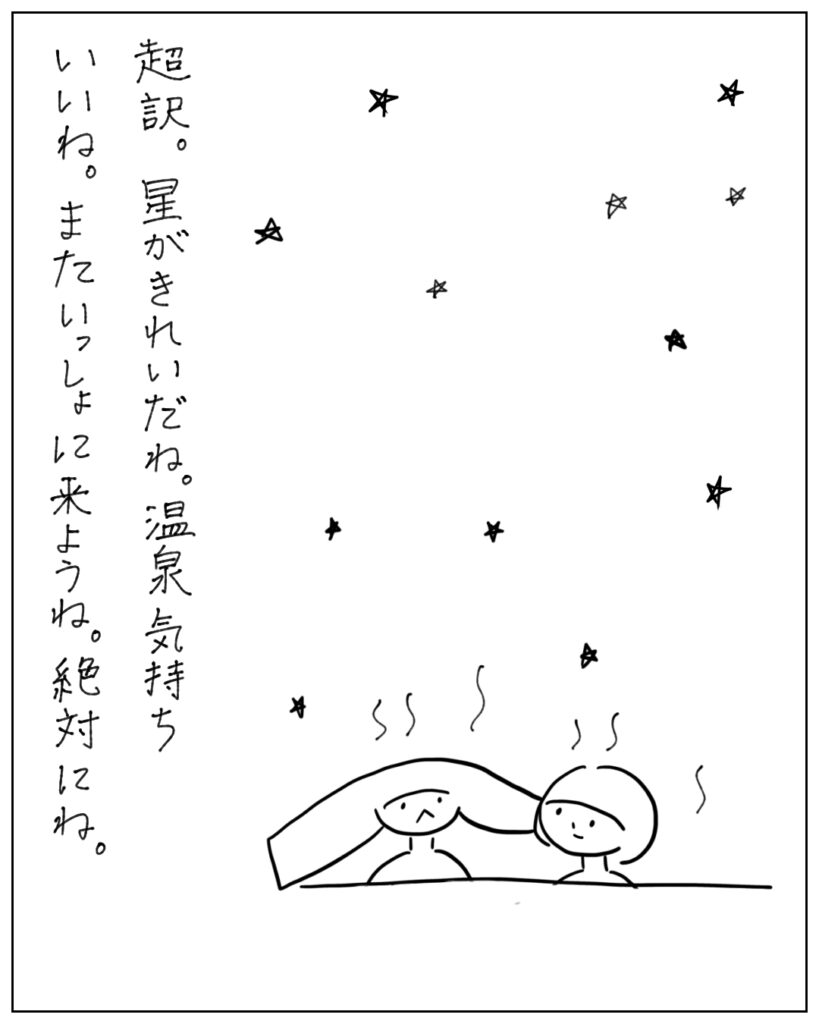 超訳。星がきれいだね。温泉気持ち
いいね。またいっしょに来ようね。絶対にね。